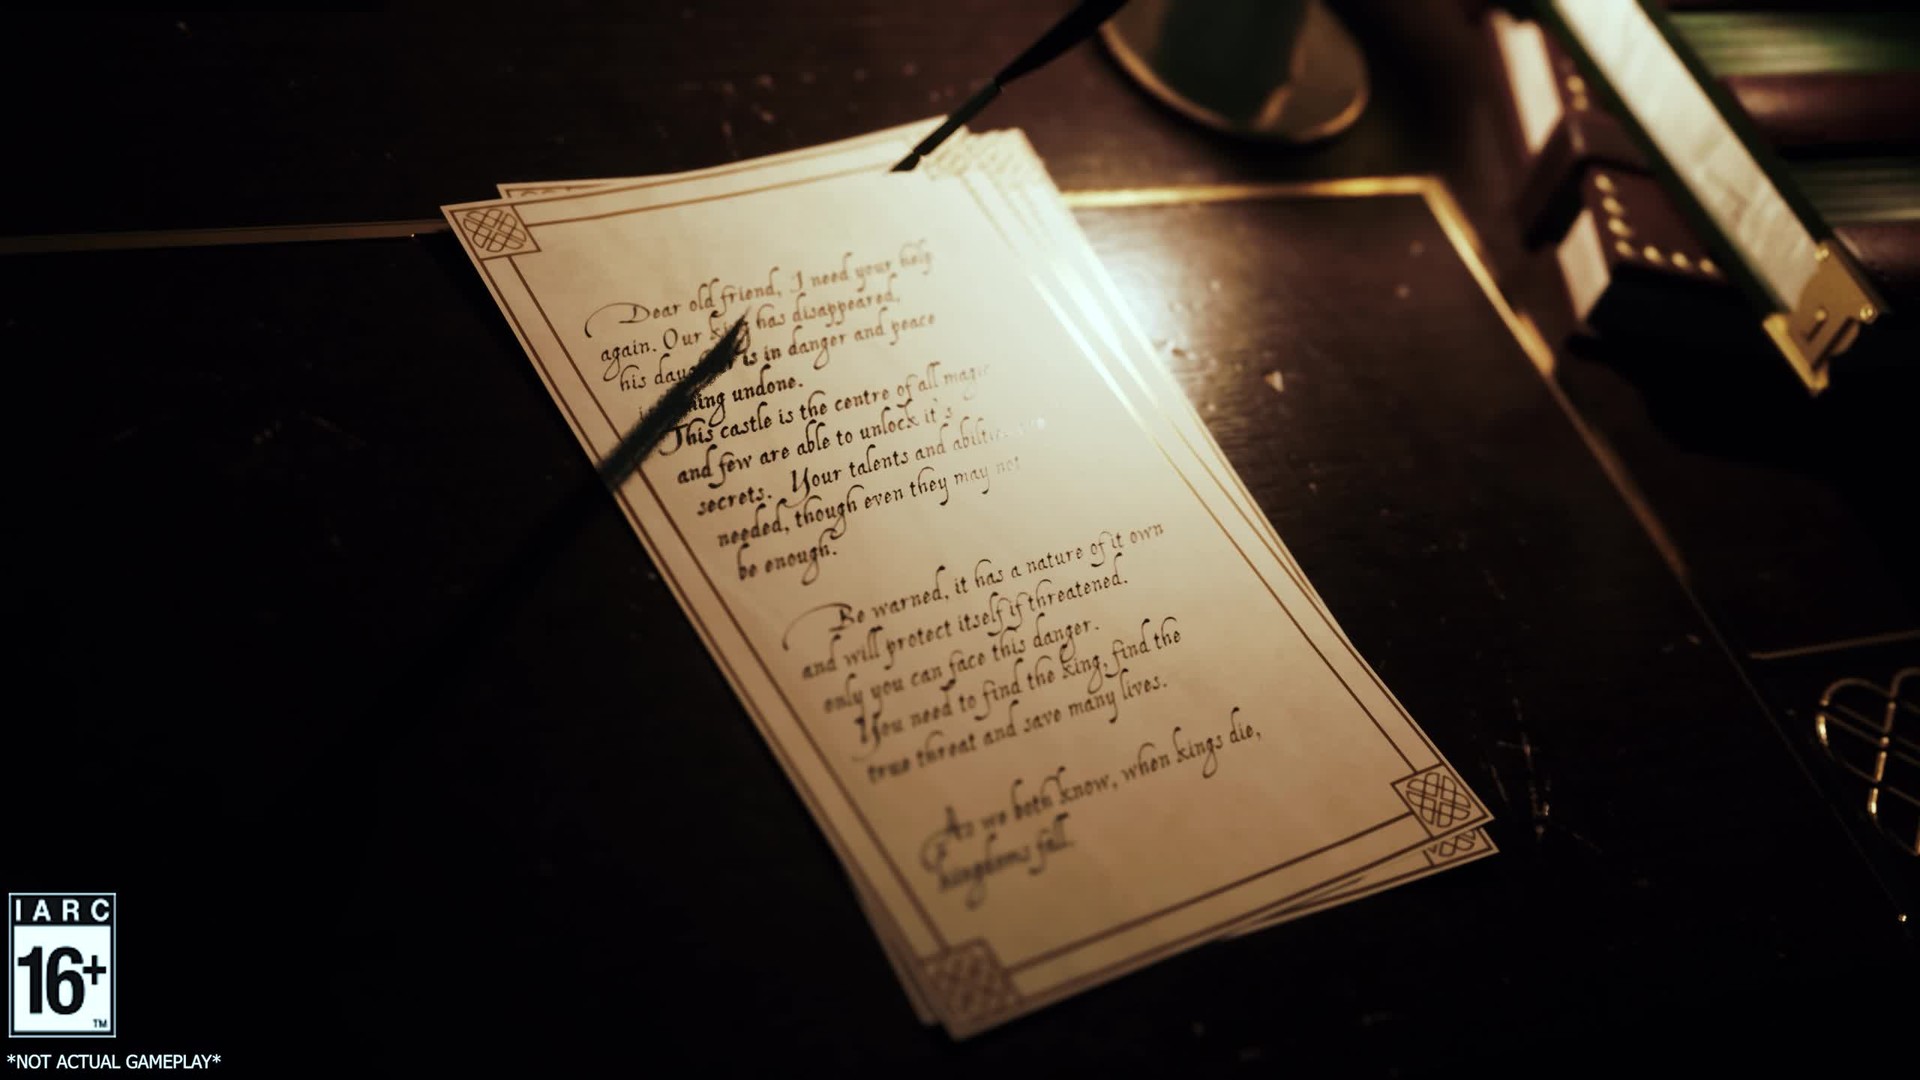 Dear old friend, I need your help
again. Our king has disappeared,
his daughter is in danger and peace
undone.
This castle is the centre of all magic
and few are able to unlock it's
secrets. Your talents and abilties
needed, though even they may not
be enough.
Be warned, it has a nature of it own
and will protect itself if threatened.
only you can face this danger.
You need to find the king, find the
true threat and save many lives.
As we both know, when kings die,
kingdoms fall.
IARC
16+
TM
*NOT ACTUAL GAMEPLAY*